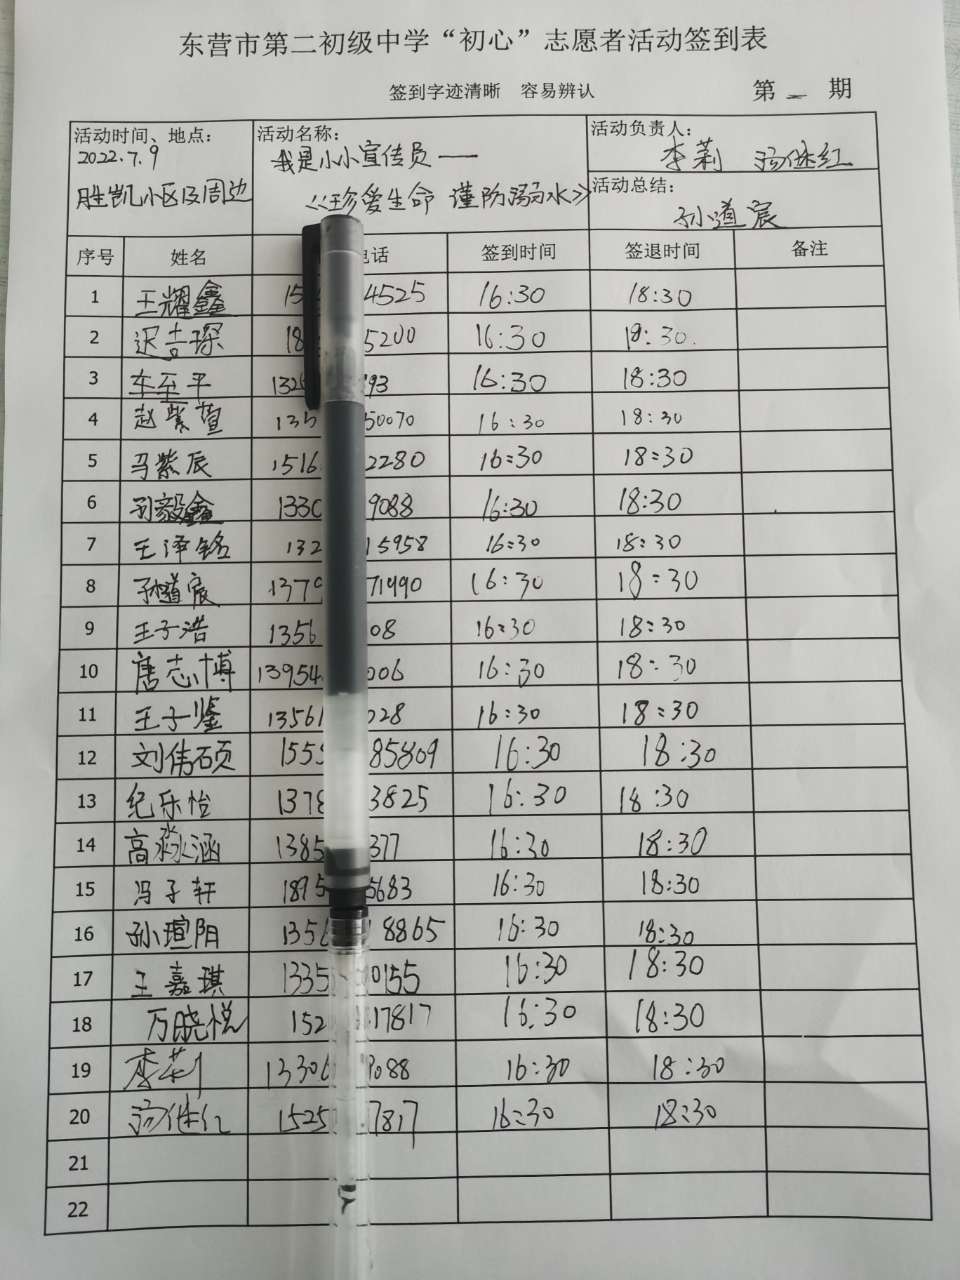 东营市第二初级中学“初心”志愿者活动签到表
签到字迹清晰 容易辨认 第二期
活动时间、地点: 2022.7.9 胜凯小区及周边
活动名称: 我是小小宣传员——《珍爱生命 谨防溺水》
活动负责人: 李莉 汤继红
活动总结: 孙道宸
序号 姓名 电话 签到时间 签退时间 备注
1 王耀鑫 15 4525 16:30 18:30
2 迟吉琛 18 5200 16:30 18:30
3 车至平 132 93 16:30 18:30
4 赵紫萱 135 50070 16:30 18:30
5 马紫辰 1516 2280 16:30 18:30
6 刘毅鑫 1330 9088 16:30 18:30
7 王泽铭 132 15958 16:30 18:30
8 孙道宸 1379 71990 16:30 18:30
9 王子浩 1356 08 16:30 18:30
10 唐志博 13954 006 16:30 18:30
11 王子鉴 13561 028 16:30 18:30
12 刘伟硕 1555 85809 16:30 18:30
13 纪乐怡 1378 3825 16:30 18:30
14 高淼涵 1385 377 16:30 18:30
15 冯子轩 1895 5683 16:30 18:30
16 孙瑄阳 1356 8865 16:30 18:30
17 王嘉琪 1335 0155 16:30 18:30
18 万晓悦 152 17817 16:30 18:30
19 李莉 13306 9088 16:30 18:30
20 汤继红 1525 7817 16:30 18:30
21
22